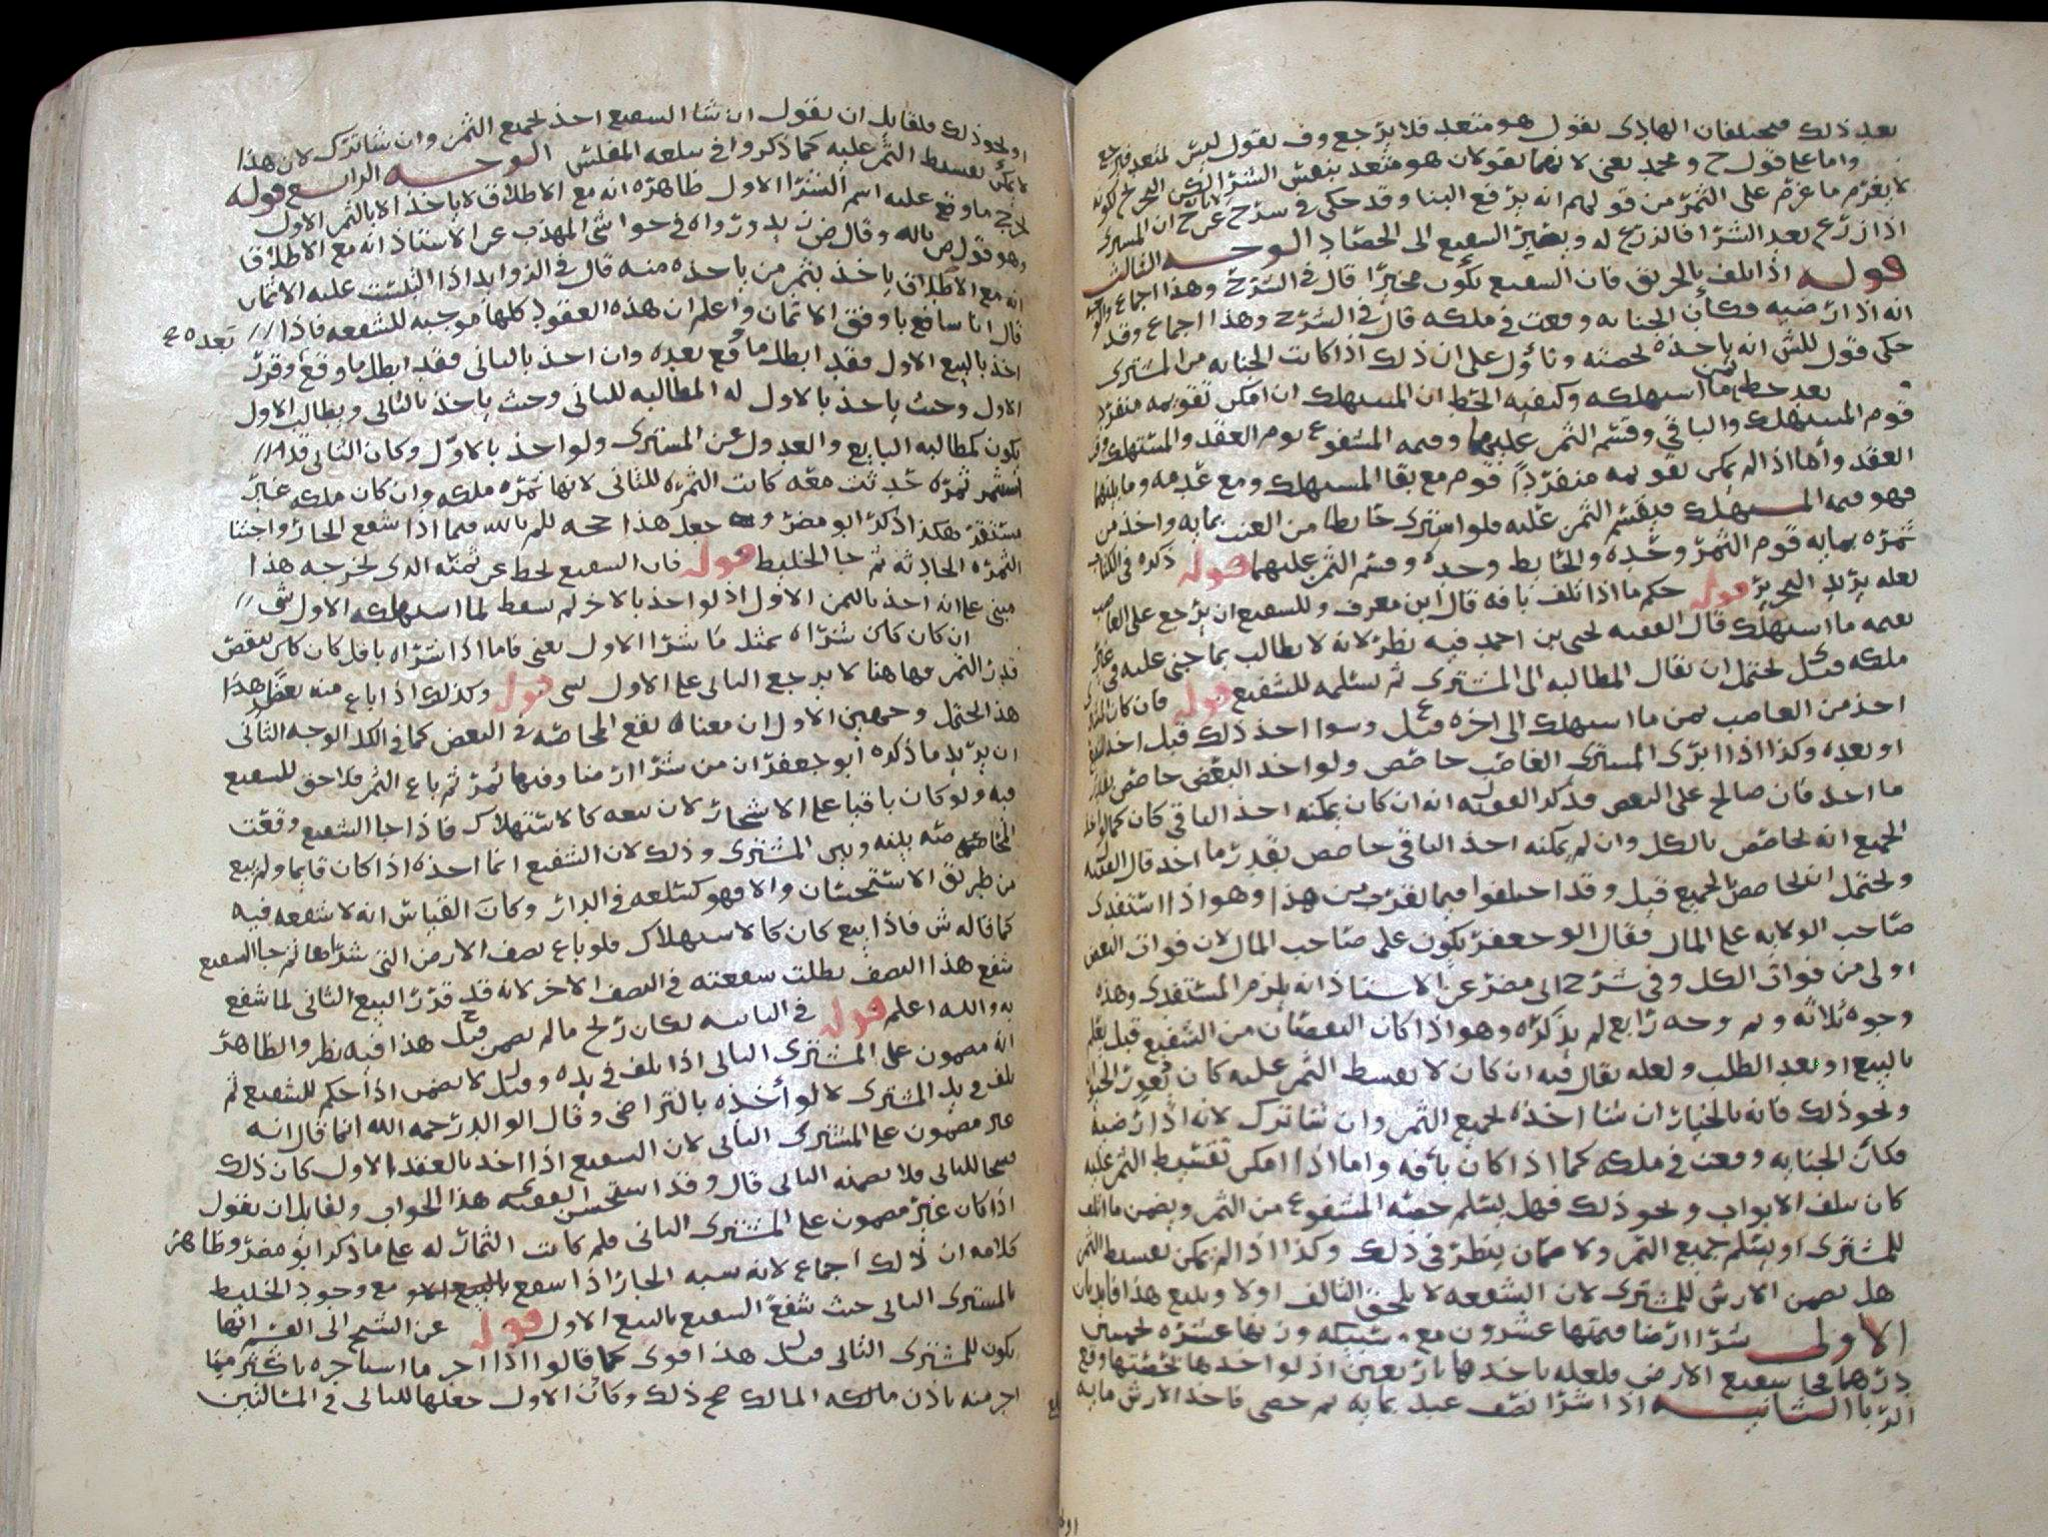 بعد ذلك فيختلفان الهادي يقول هو متعد فلا يرجع وف يقول ليس لمتعد فيرجع
واما على قول ح و محمد يعني لانهما يقولان هو متعد بنفس الشرا لكن
لا يغرم ما غرم على الثمر من قولهم انه يرفع البنا وقد حكى في شرح عن ح ان المشتري
اذا زرع بعد الشرا فالزرع له ويصير الشفيع الى الحصاد الوجه الثالث
قوله اذا تلف بالحريق فان الشفيع يكون مخيرا قال في الشرح وهذا اجماع
انه اذا رضيه فكأن الجنايه وقعت في ملكه قال في الشرح وهذا اجماع وقد
حكى قول للش انه ياخذه بحصته وتأول على ان ذلك اذا كانت الجنايه من المشتري
بعد حط ثمن ما استهلكه وكيفيه الحط ان المستهلك ان امكن تقويمه منفردا
قوم المستهلك والباقي وقسم الثمن عليهما وقيمه المشفوع يوم العقد والمستهلك
العقد وأما اذا لم يمكن تقويمه منفردا قوم مع بقا المستهلك ومع عدمه وما بينهما
فهو قيمه المستهلك فيقسم الثمن عليه فلو اشترى حايطا من العنب بمايه واخذ من
ثمره بمايه قوم الثمر وحده والحايط وحده وقسم الثمن عليهما قوله ذكره في الكتاب
لعله يريد التحرير قوله حكم ما اذا تلف بافه قال ابن معرف وللشفيع ان يرجع على الغاصب
بقيمه ما استهلك قال الفقيه يحيى بن احمد فيه نظر لانه لا يطالب بما جنى عليه في غير
ملكه قيل يحتمل ان يقال المطالبه الى المشتري ثم يسلمه للشفيع قوله فان كان المشتري
اخذ من الغاصب ثمن ما استهلك الى اخره وسوا اخذ ذلك قبل اخذ الشفيع
او بعده وكذا اذا ابرى المشتري الغاصب حاصص ولو اخذ البعض حاصص بقدر
ما اخذ فان صالح على البعض فذكر الفقيه انه ان كان يمكنه اخذ الباقي كان كما لو اخذ
الجميع انه يحاصص بالكل وان لم يمكنه اخذ الباقي حاصص بقدر ما اخذ قال الفقيه
ويحتمل ان يحاصص لجميع قيل وقد اختلفوا فيما يقرب من هذا وهو اذا استفدى
صاحب الولايه على المال فقال ابو جعفر يكون على صاحب المال لان فوات البعض
اولى من فوات الكل وفي شرح ابي مضر عن الاستاذ انه يلزم المستفدي وهذه
وجوه ثلاثه وثم وجه رابع لم يذكره وهو اذا كان النقصان من الشفيع قبل يعلم
بالبيع او بعد الطلب ولعله يقال فيه ان كان لا يقسط الثمن عليه كان
ونحو ذلك فانه بالخيار ان شا اخذه بجميع الثمن وان شا ترك لانه اذا رضيه
فكأن الجنايه وقعت في ملكه كما اذا كان بأفه واما اذا امكن تقسيط الثمن عليه
كان يتلف الابواب ونحو ذلك فهل يسلم حصه المشفوع من الثمن ويضمن ما اتلف
للمشتري او يسلم جميع الثمن ولا ضمان ينظر في ذلك وكذا اذا لم يمكن تقسيط الثمن
هل يضمن الارش للمشتري لان الشفعه لا تلحق التالف اولا وينبع هذا فايدتان
الاولى شرا ارضا قيمتها عشرون مع شبيكه وزنها عشره بخمسين
درهما فجا شفيع الارض فلعله ياخذها باربعين اذ لو اخذها بحصتها وقع
الربا الثانيه اذا شرا نصف عبد بمايه ثم خصي فاخذ الارش مايه
او نحو ذلك فلقايل ان يقول ان شا الشفيع اخذ بجميع الثمن وان شا ترك لان هذا
لا يمكن تقسيط الثمن عليه كما ذكروا في سلعه المفلس الوجه الرابع قوله
يرجح ما وقع عليه اسم الشرا الاول ظاهره انه مع الاطلاق لا ياخذ الا بالثمن الاول
وهو قول ص بالله وقال ض زيد ورواه في حواشي المهذب عن الاستاذ انه مع الاطلاق
انه مع الاطلاق ياخذ بثمن من ياخذه منه قال في الزوايد اذا التبست عليه الاثمان
قال انا شافع باوفق الاثمان واعلم ان هذه العقود كلها موجبه للشفعه فاذا
بعده ع
اخذ بالبيع الاول فقد ابطل ما وقع بعده وان اخذ بالثاني فقد ابطل ما وقع وقرر
الاول وحيث ياخذ بالاول له المطالبه للثاني وحيث ياخذ بالثاني ويطالب الاول
يكون كمطالبه البايع والعدول عن المشتري ولو اخذ بالاول وكان الثاني قد
استثمر ثمره حدثت معه كانت الثمره للثاني لانها ثمره ملكه وان كان ملكه غير
مستقر هكذا ذكر ابو مضر وجعل هذا حجه للم بالله فيما اذا شفع الجار واجتنا
الثمره الحادثه ثم جا الخليط قوله فان الشفيع يحط عن ثمنه الذي يخرجه هذا
مبني على انه اخذ بالثمن الاول اذ لو اخذ بالاخر لم يسقط لما استهلكه الاول شي
ان كان شراه بمثل ما شرا الاول يعني فاما اذا شراه باقل كان كان ينقص
قدر الثمن فها هنا لا يرجع الثاني على الاول بشي قوله وكذلك اذا باع منه بعضا هذا
هذا يحتمل وجهين الاول ان معناه تقع المحاصه في البعض كما في الكل الوجه الثاني
ان يريد ما ذكره ابو جعفر ان من شرا ارضا وفيها ثمر ثم باع الثمر فلا حق للشفيع
فيه ولو كان باقيا على الاشجار لان بيعه كالاستهلاك فاذا جا الشفيع وقعت
المحاصه بينه وبين المشتري وذلك لان الشفيع انما اخذه اذا كان قايما ولم يبع
من طريق الاستحسان والا فهو كسلعه في الدار وكان القياس انه لا شفعه فيه
كما قاله ش فاذا بيع كان كالاستهلاك فلو باع نصف الارض التي شراها ثم جا الشفيع
شفع هذا النصف بطلت شفعته في النصف الاخر لانه قد قرر البيع الثاني لما شفع
به والله اعلم قوله في الثانيه لكان ربح ما لم يضمن قيل هذا فيه نظر والظاهر
انه مضمون على المشتري الثاني اذا تلف في يده وقيل لا يضمن اذا حكم للشفيع ثم
تلف في يد المشتري لا لو أخذه بالتراضي وقال الوالد رحمه الله انما قال انه
غير مضمون على المشتري الثاني لان الشفيع اذا اخذ بالعقد الاول كان ذلك
فسخا للثاني فلا يضمنه الثاني قال وقد استحسن الفقيه هذا الجواب ولقايل ان يقول
اذا كان غير مضمون على المشتري الثاني فلم كانت الثمار له على ما ذكر ابو مضر وظاهر
كلامه ان ذلك اجماع لانه شبه الجار اذا شفع بالبيع الاو مع وجود الخليط
بالمشتري الثاني حيث شفع الشفيع بالبيع الاول قوله عن الشيخ ابي القسم انها
يكون للمشتري الثاني قيل هذا قوي كما قالوا اذا اجر ما استاجره باكثر مما
اجر منه باذن مالكه المالك صح ذلك وكان الاول جعلها للثاني في المسألتين